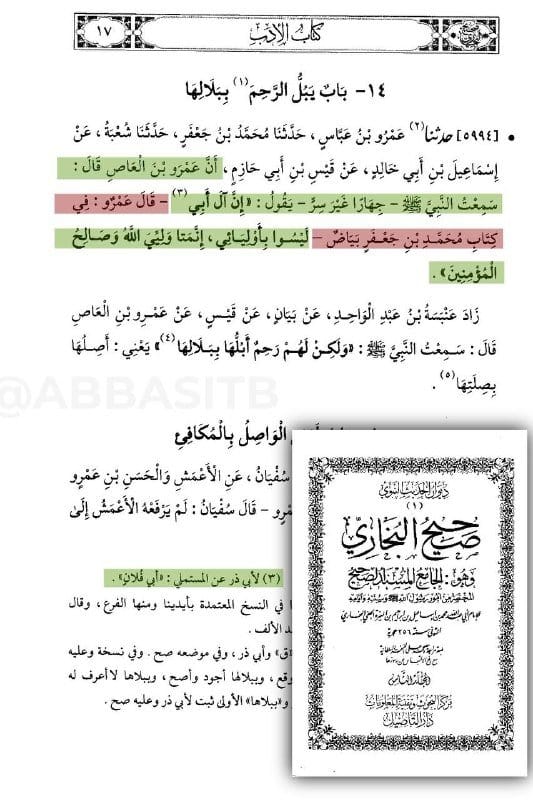 ١٧
كتاب الأدب
١٤- بَابٌ يَبُلُّ الرَّحِمَ (١) بِبَلَالِهَا
• [٥٩٩٤] حدثنا (٢) عَمْرُو بْنُ عَبَّاسٍ، حَدَّثَنَا مُحَمَّدُ بْنُ جَعْفَرٍ، حَدَّثَنَا شُعْبَةُ، عَنْ
إِسْمَاعِيلَ بْنِ أَبِي خَالِدٍ، عَنْ قَيْسِ بْنِ أَبِي حَازِمٍ، أَنَّ عَمْرَو بْنَ الْعَاصِ قَالَ:
سَمِعْتُ النَّبِيَّ ﷺ - جِهَارًا غَيْرَ سِرٍّ - يَقُولُ: «إِنَّ آلَ أَبِي (٣) - قَالَ عَمْرٌو: فِي
كِتَابِ مُحَمَّدِ بْنِ جَعْفَرٍ بَيَاضٌ - لَيْسُوا بِأَوْلِيَائِي، إِنَّمَا وَلِيِّيَ اللَّهُ وَصَالِحُ
الْمُؤْمِنِينَ».
زَادَ عَنْبَسَةُ بْنُ عَبْدِ الْوَاحِدِ، عَنْ بَيَانٍ، عَنْ قَيْسٍ، عَنْ عَمْرِو بْنِ الْعَاصِ
قَالَ: سَمِعْتُ النَّبِيَّ ﷺ: «وَلَكِنْ لَهُمْ رَحِمٌ أَبُلُّهَا بِبَلَالِهَا (٤)» يَعْنِي: أَصِلُهَا
بِصِلَتِهَا (٥).
@ABBASITB
الْوَاصِلُ بِالْمُكَافِئِ
سُفْيَانُ، عَنِ الْأَعْمَشِ وَالْحَسَنِ بْنِ عَمْرٍو
مْرٍو - قَالَ سُفْيَانُ: لَمْ يَرْفَعْهُ الْأَعْمَشُ إِلَى
(٣) لأبي ذر عن المستملي: «أبي فُلان».
في النسخ المعتمدة بأيدينا ومنها الفرع، وقال
د الألف.
«ق» وأبي ذر، وفي موضعه صح. وفي نسخة وعليه
وقع، وببلالها أجود وأصح، وببلاها لا أعرف له
و«ببلاها» الأولى ثبت لأبي ذر وعليه صح.
ديوان الحديث النبوي
(١)
صحيح البخاري
وهو: الجامع المسند الصحيح
المجلد الثامن
مركز البحوث وتقنية المعلومات
دار التأصيل